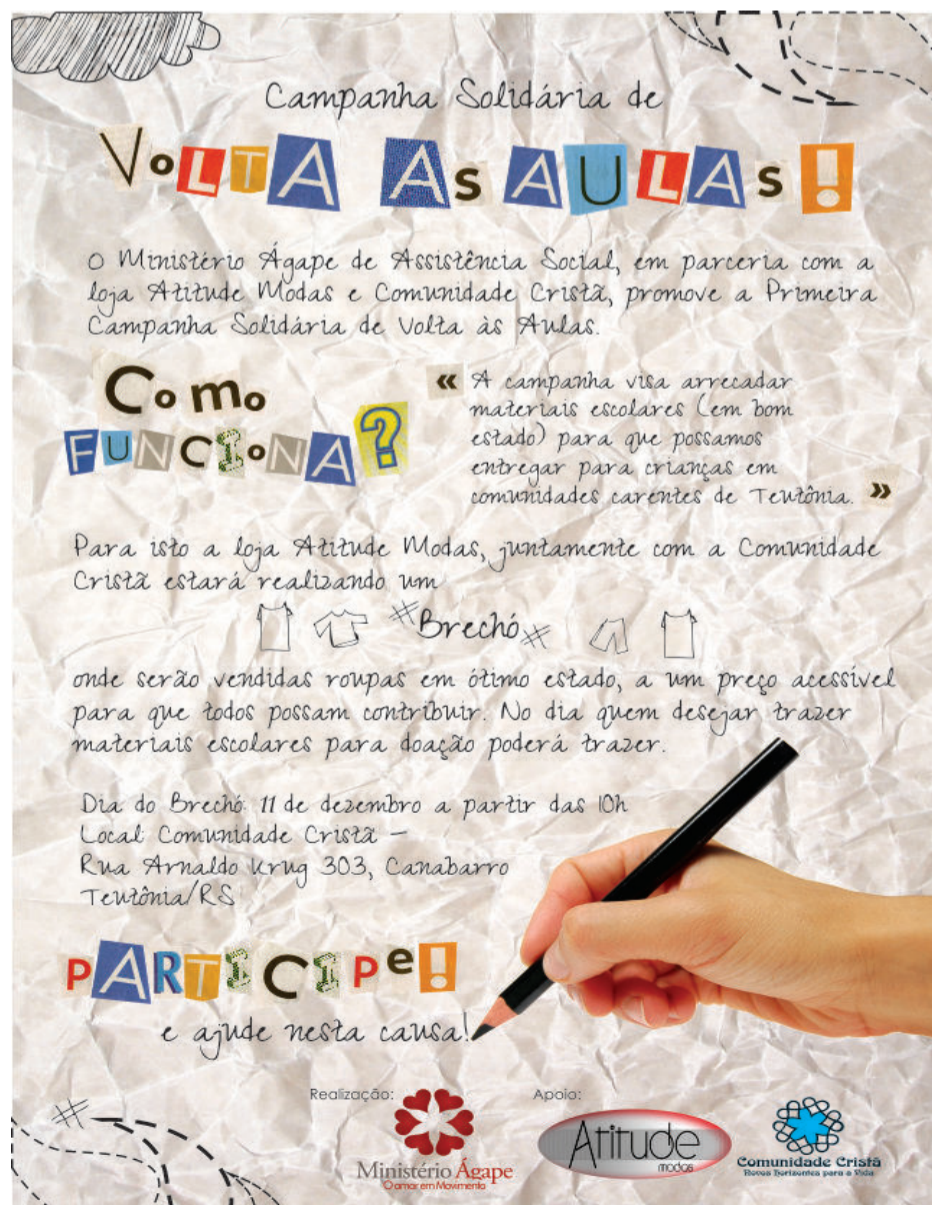 Campanha Solidária de
VoLTA As AULAs!
O Ministério Ágape de Assistência Social, em parceria com a
loja Atitude Modas e Comunidade Cristã, promove a Primeira
Campanha Solidária de Volta às Aulas.
Como
FUNCIoNA?
« A campanha visa arrecadar
materiais escolares (em bom
estado) para que possamos
entregar para crianças em
comunidades carentes de Teutônia. »
Para isto a loja Atitude Modas, juntamente com a Comunidade
Cristã estará realizando um
#Brechó#
onde serão vendidas roupas em ótimo estado, a um preço acessível
para que todos possam contribuir. No dia quem desejar trazer
materiais escolares para doação poderá trazer.
Dia do Brechó: 11 de dezembro a partir das 10h
Local: Comunidade Cristã –
Rua Arnaldo Krug 303, Canabarro
Teutônia/RS
PARTICIPe!
e ajude nesta causa!
#
Realização:
Apoio:
Ministério Ágape
O amar em Movimento
Atitude
modas
Comunidade Cristã
Novos Horizontes para a Vida